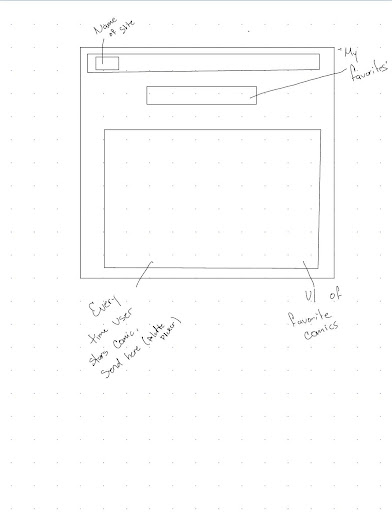 Name
of site
"My
favorites"
Every
time user
stars comic,
send here (
UI of
favorite
comics